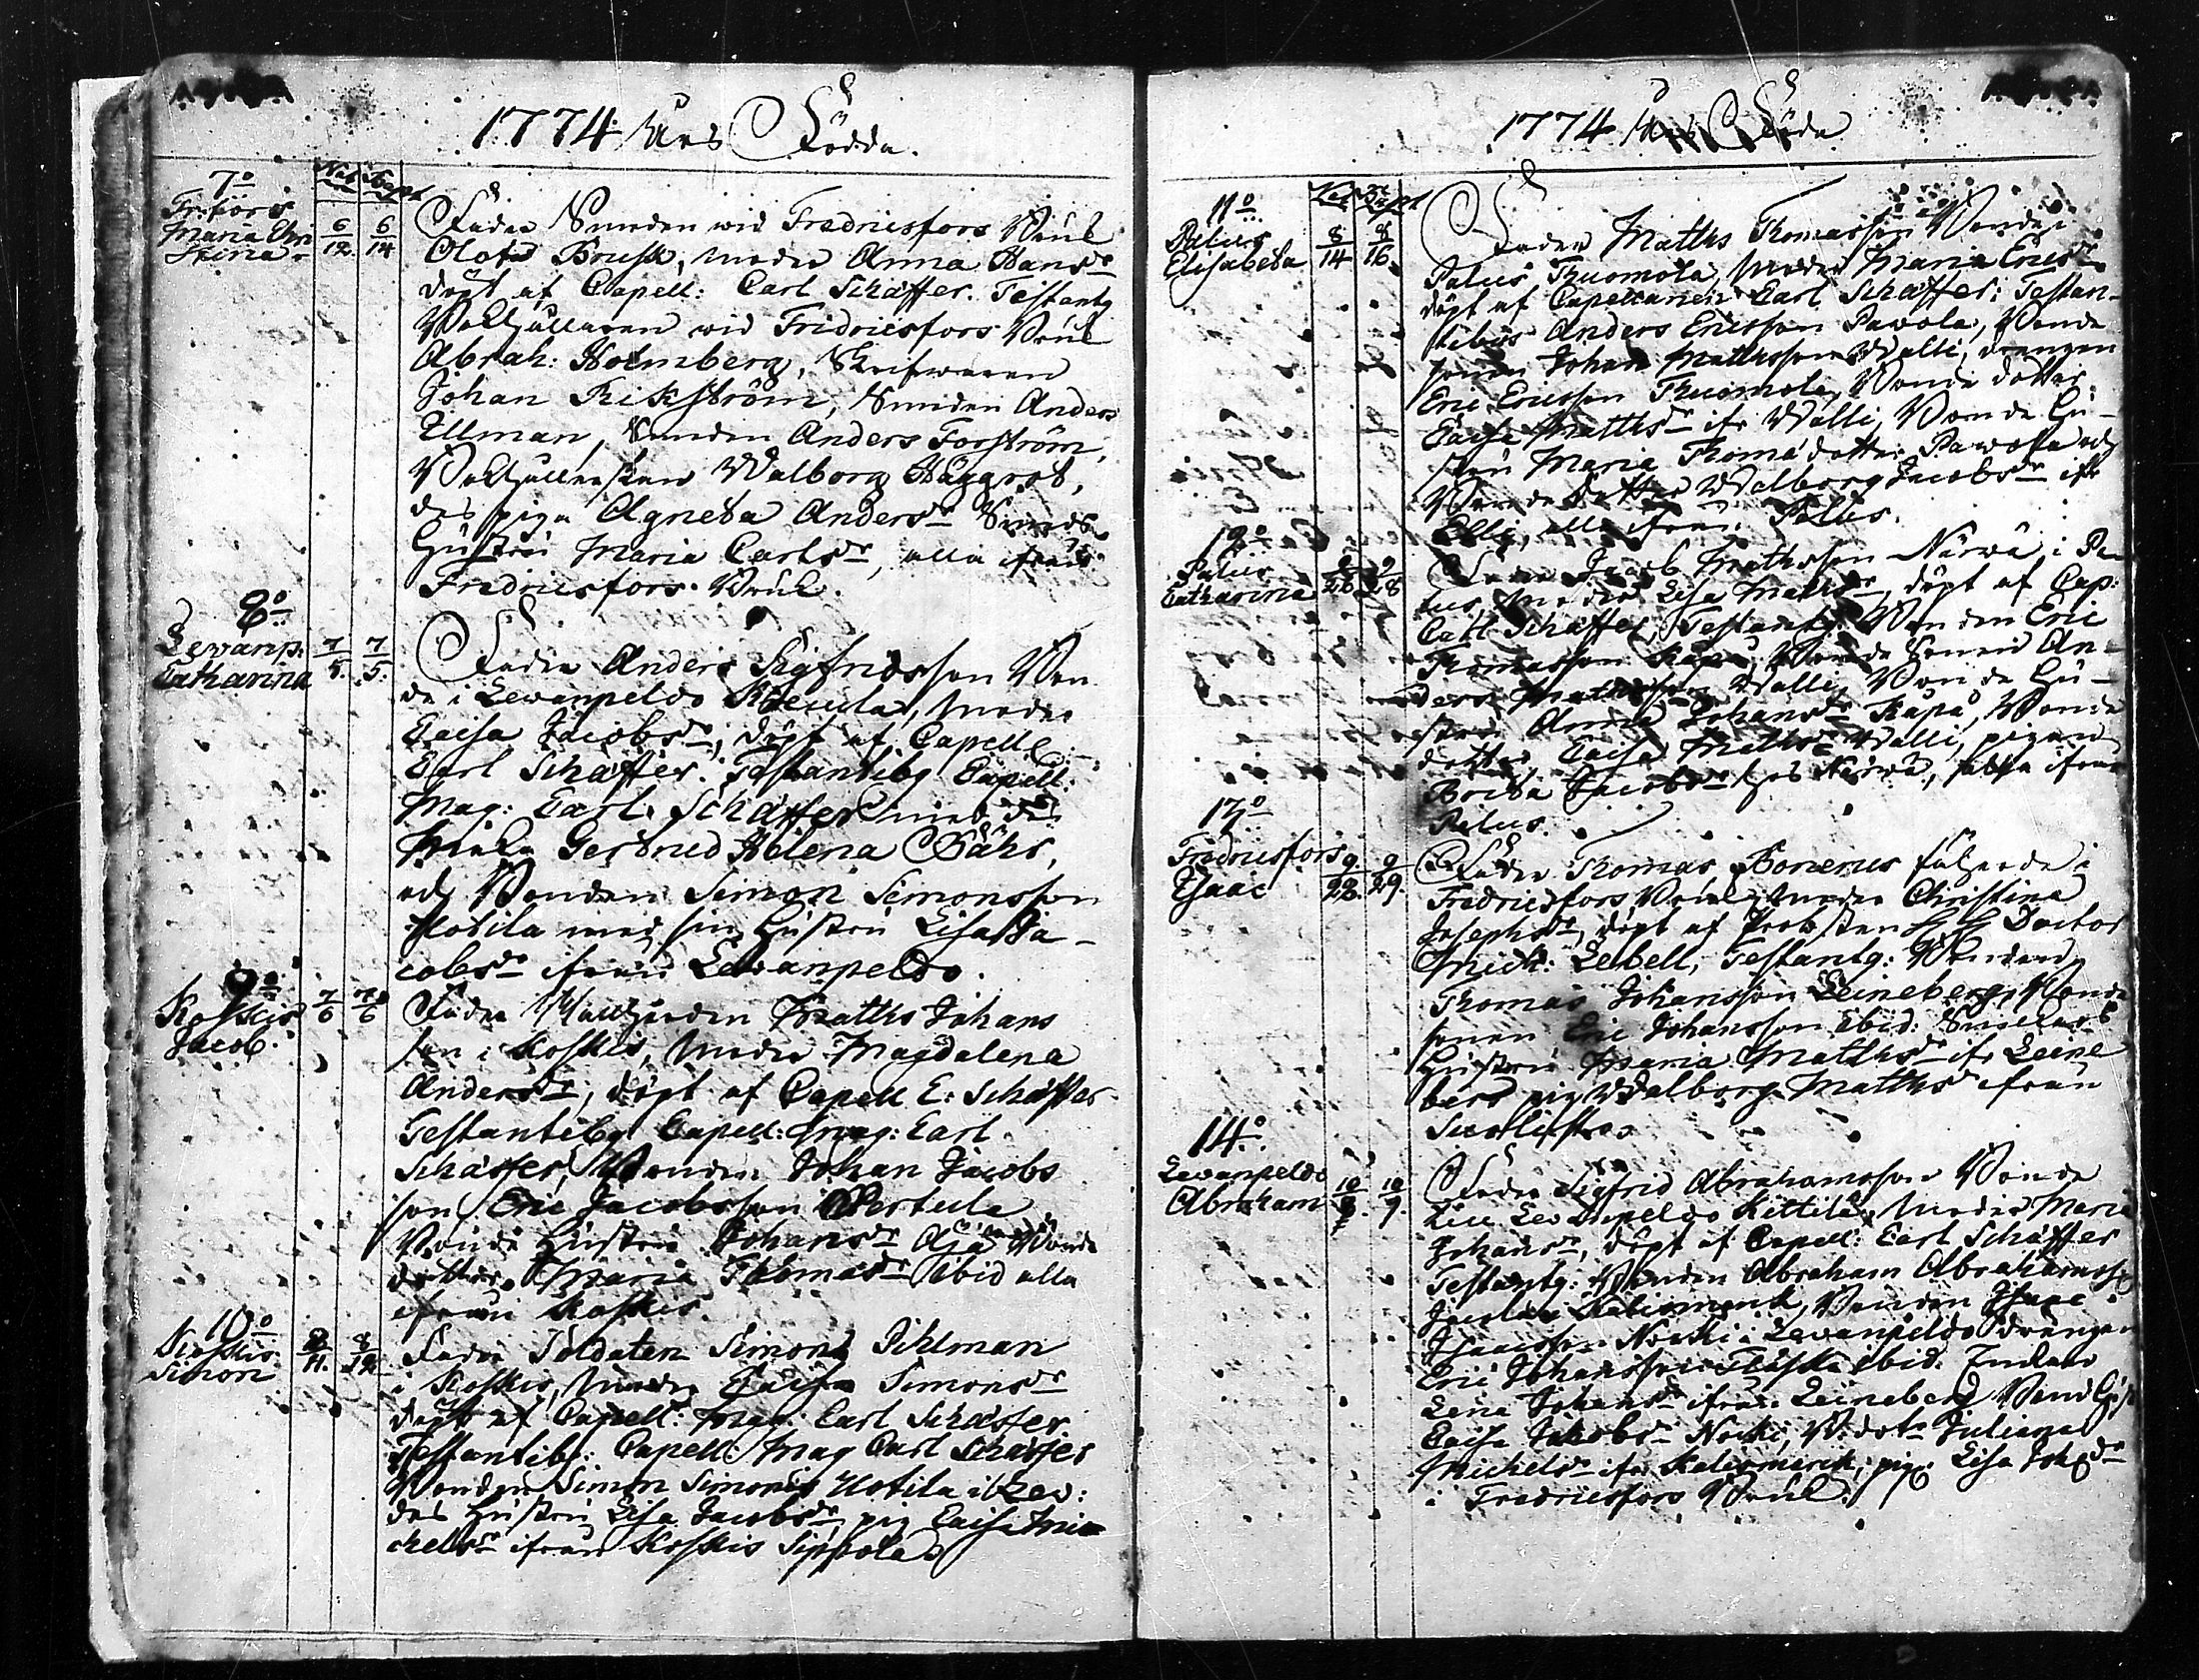 1774 Års Födda.
Nat. Bapt.
7º
Fr:fors
Maria Chri
stina
6/12. 6/14
Fader Smeden wid Fredricsfors Bruk
Olof Brusk, Moder Anna Hansdr
döpt af Capell: Carl Schæffer. Testantg
wid Fridricsfors Bruk
Abrah: Holmberg,
Johan Rikström, Smeden Anders
Ullman, Smeden Anders Forström,
Walborg Häggrot,
des piga Agneta Andersdr Smeds
Hustru Maria Carlsdr, alla ifrån
Fredricsfors Bruk.
8º
Lewanp.
Catharina
7/5. 7/5.
Fader Anders Sigfridsson Bon
de i Lewanpeldo Moder
Caisa Jacobsdr, döpt af Capell:
Carl Schæffer. Testantibg Capell:
Mag: Carl Schæffer med des
Gertrud Helena Bähr,
och Bonden Simon Simonsson
Hotila med sin Hustru Lisa Ja-
cobsdr ifrån Lewanpeldo.
9º
Koskis
Jacob.
7/6 7/6
Fader Matths Johans
son i Koskis, Moder Magdalena
Andersdr, döpt af Capell C: Schæffer
Testantibg Capell: Mag: Carl
Schæffer, Bonden Johan Jacobs
son, Eric Jacobsson Pertula
Bonde Hustru Johansdr Bonde
dotter Maria Thomasdr ibid alla
ifrån Koskis.
10º
Koskis
Simon
8/11. 8/12
Fader Soldaten Simon Pihlman
i Koskis, Moder Caisa Simonsdr
döpt af Capell: Mag: Carl Schæffer
Testantibg: Capell: Mag Carl Schæffer
Bonden Simon Simonss Hotila i Lew:
des Hustru Lisa Jacobsdr, pig Caisa Mi
chelsdr ifrån Koskis Sippola
1774 Års Födda
Nat. Bapt
11º
Palus
Elisabeta
8/14 8/16
Fader Matths Thomasson Bonde i
Palus Thuomola, Moder Maria Ericsdr
döpt af Capellanen Carl Schæffer; Testan-
tibus Anders Ericsson Pawola, Bonde
sonen Johan Matthsson Walli, drengen
Eric Ericsson Thuomola, Bonde dotter
Caisa Matthsdr ifr Walli, Bonde Hu-
stru Maria Thomædotter Pawola och
Bonde dotter Walborg Jacobsdr ifr
Elli, alla ifrån Palus.
12º
Palus
Catharina
9/28
Fader Jacob Mathsson Närwä i Pa
lus, Moder Lisa Mattsdr, döpt af Cap:
Carl Schæffer, Testantg: Bonden Eric
Thomasson Käpä Bonde Sonen An-
ders Mathsson Walli, Bonde Hu-
stru Anna Johansdr Käpä, Bonde
dotter Caisa Mathsdr Walli, pigan
Brita Jacobsdr hos Närwä, alla ifrån
Palus.
13º
Fredricsfors
Isaac
9/22. 9/29.
Fader Thomas
Fredricsfors Bruk, Moder Christina
Josephsdr, döpt af Probsten H H Doctor
Mich: Lebell, Testantg: Bonden
Thomas Johansson Leineberg, Bonde
sonen Eric Johansson ibid:
Hustru Maria Matthsdr ifr Leine
berg pig Walborg Matthsdr ifrån
14º.
Lewanpeldo
Abraham
10/8. 10/9.
Fader Sigfrid Abrahamsson Bonde
Lewanpeldo Kittilä, Moder Maria
Johansdr, döpt af Capell: Carl Schæffer
Testantg: Bonden Abraham Abrahamsson
Kaliomenk, Bonden Isaac
Isaacsson Norki i Lewanpeldo drängen
Eric Johansson ibid.
Lena Johansdr ifrån Leineberg
Caisa Jakobsdr Norki, B:dotr Juliana
Michelsdr ifr Kaliomenk, pig: Lisa Johdr
i Fredricsfors Bruk.